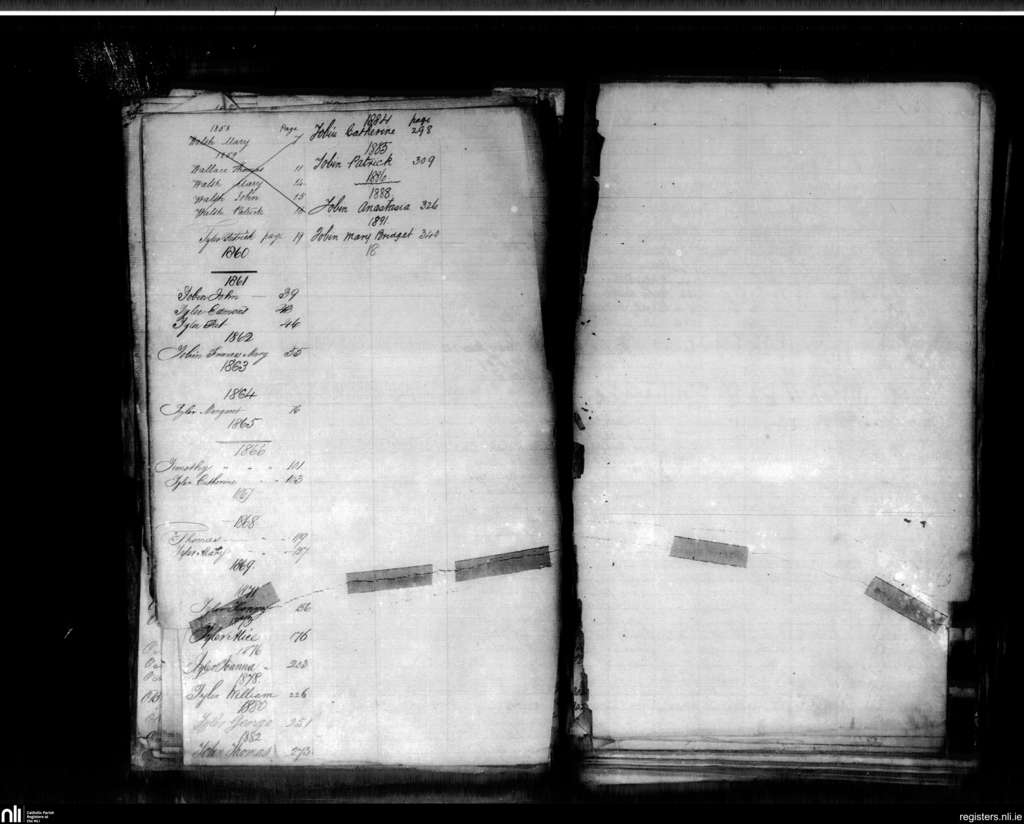 1858 Page
Walsh Mary 7
1859
Wallace Thomas 11
Walsh Mary 14
Walsh John 15
Walsh Patrick
Tyler Patrick page 19
1860
1861
Tobin John 39
Tyler Edmond 43
Tyler 46
1862
Tobin Frances Mary 55
1863
1864
Tyler Margaret 76
1865
1866
Timothy " " " 101
Tyler Catherine " " 103
1867
1868
Thomas 119
Tyler Maty 127
1869
1871
Tyler 156
1873
Tyler Alice 176
1876
Tyler Joanna 203
1878
Tyler William 226
1880
Tyler George 251
1882
Tobin Thomas 273
1884 page
Tobin Catherine 298
1885
Tobin Patrick 309
1886
1888
Tobin Anastasia 326
1891
Tobin Mary Bridget 340
18
nli
Catholic Parish
Registers at
the NLI
registers.nli.ie